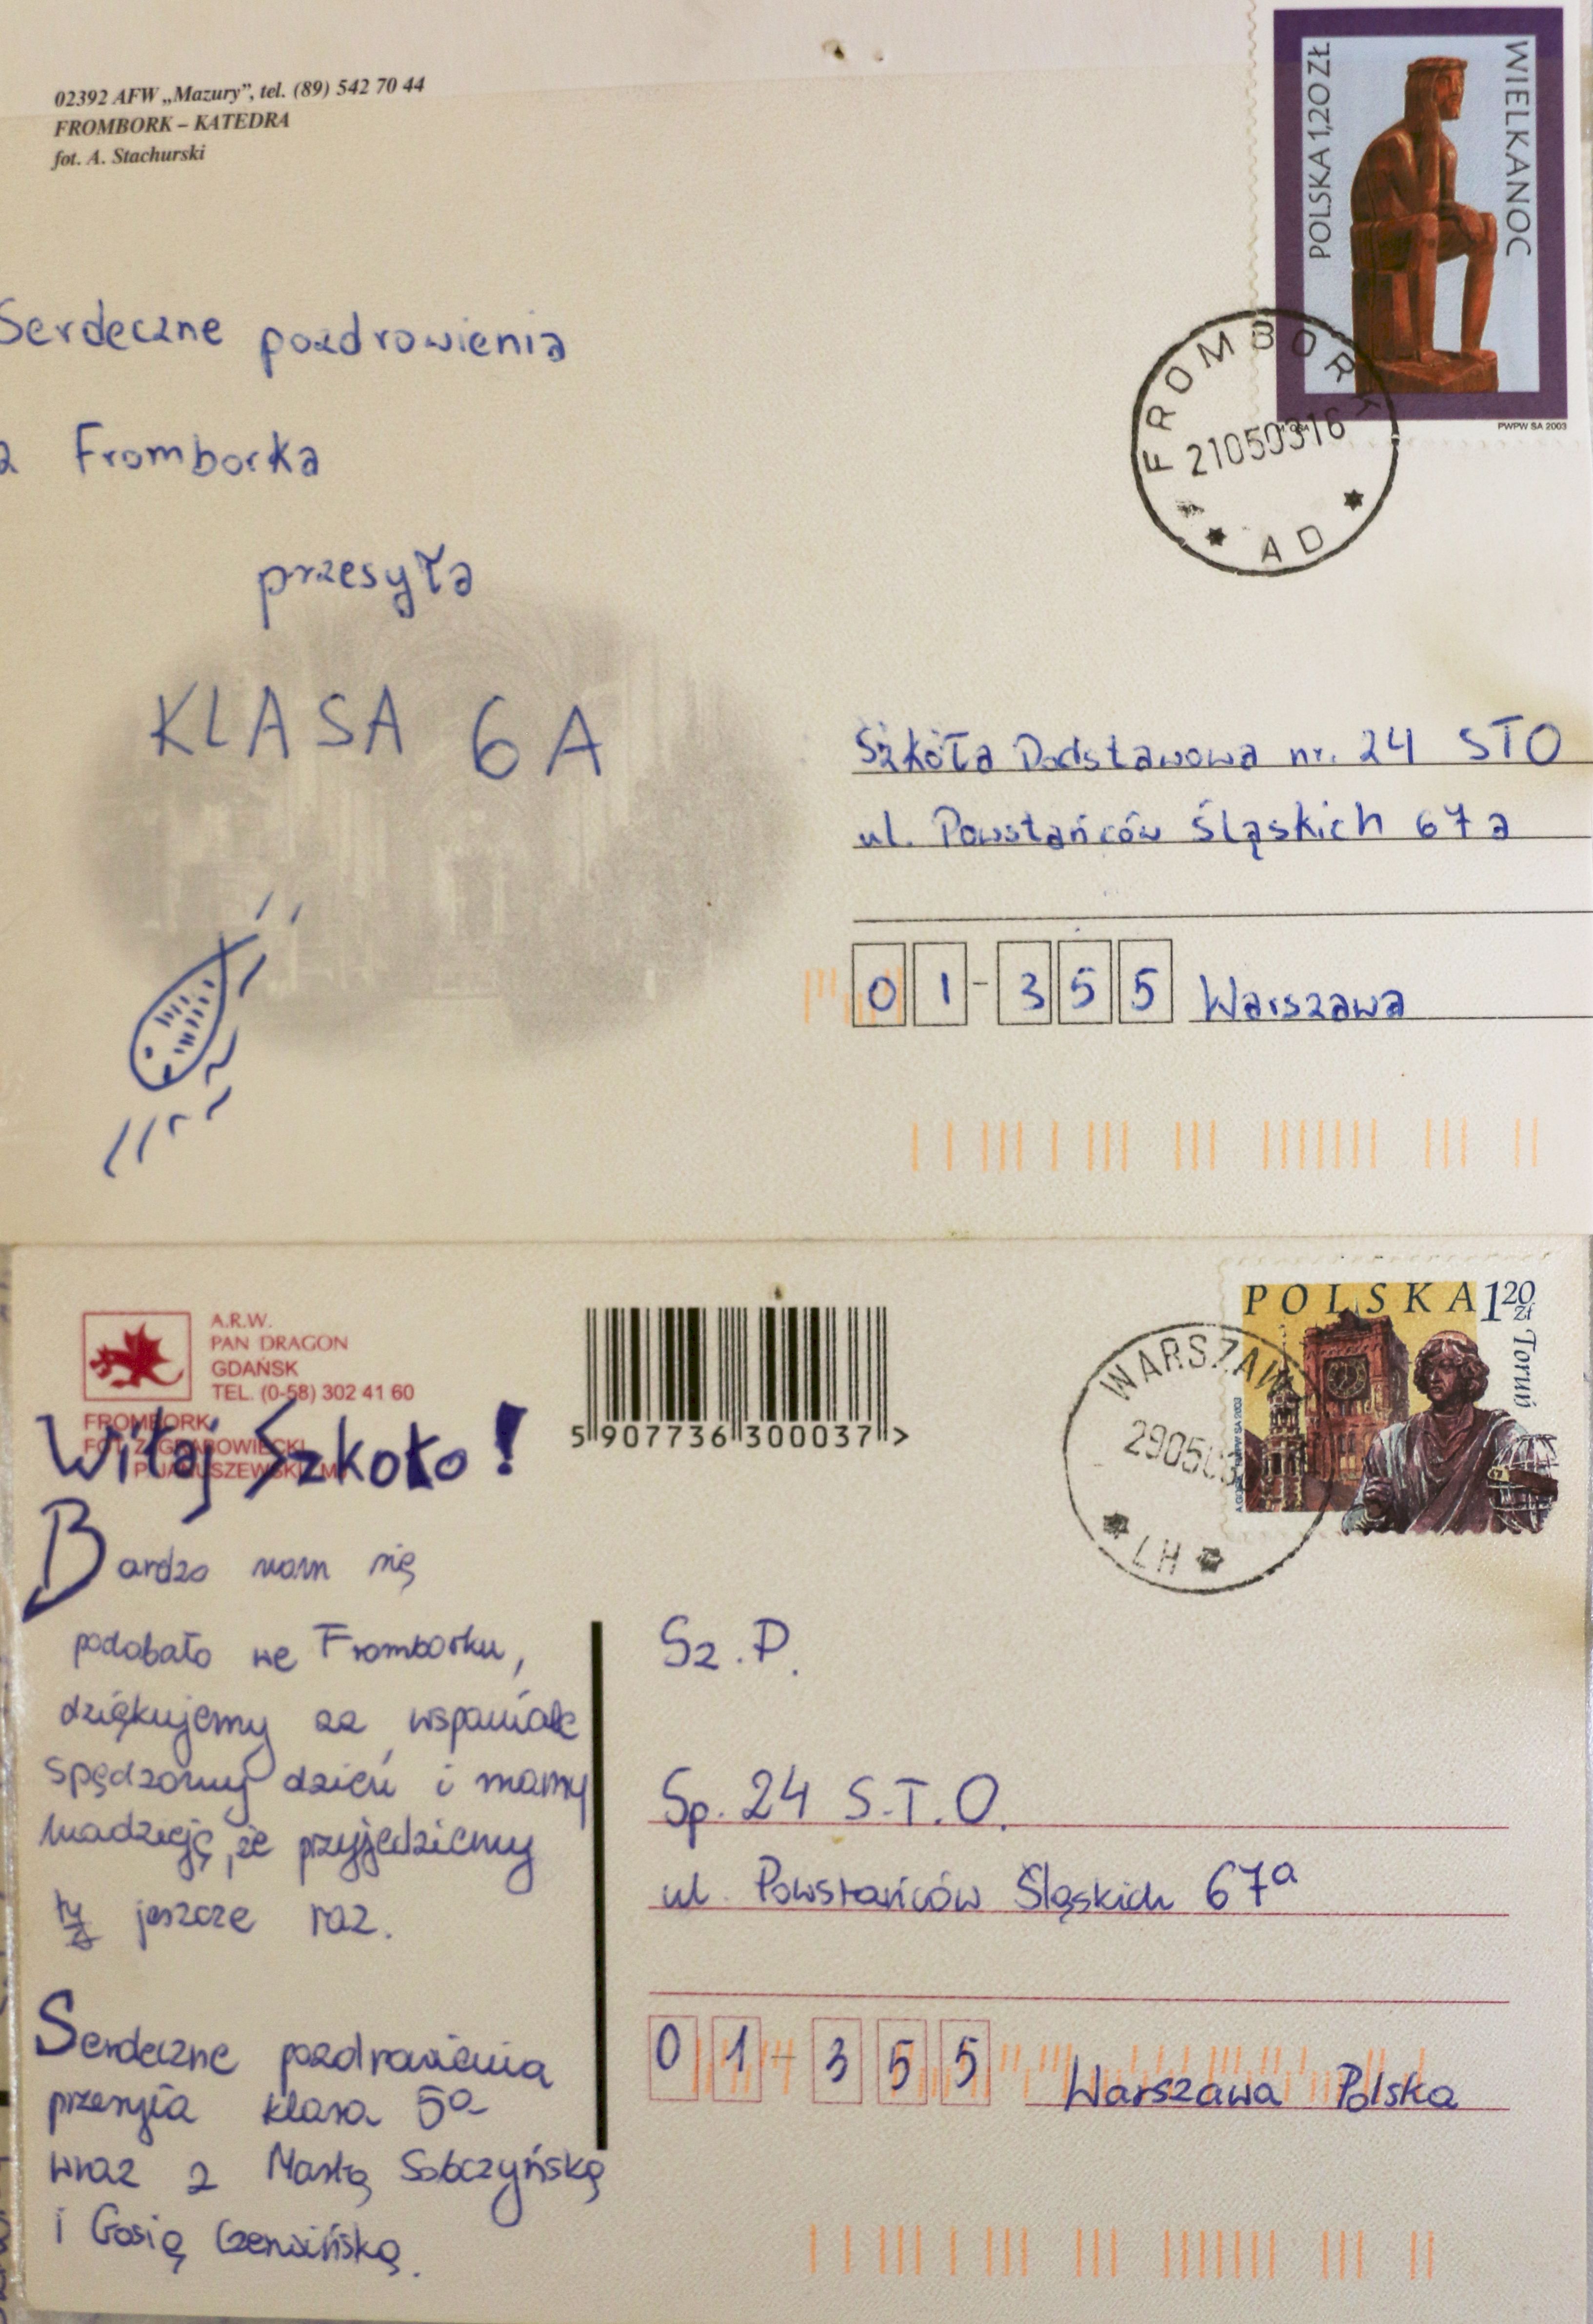 02392 AFW „Mazury”, tel. (89) 542 70 44
FROMBORK – KATEDRA
fot. A. Stachurski
POLSKA 1,20 ZŁ
WIELKANOC
PWPW SA 2003
FROMBORK
21050316
AD
Serdeczne pozdrowienia
z Fromborka
przesyła
KLASA 6A
Szkoła Podstawowa nr. 24 STO
ul. Powstańców Śląskich 67a
01-355 Warszawa
A.R.W.
PAN DRAGON
GDAŃSK
TEL. (0-58) 302 41 60
FROMBORK
FOT. Z. GRABOWIECKI
5 907736 300037 >
POLSKA 1 20 zł
Toruń
PWPW SA 2003
WARSZAWA
290503
LH
Witaj Szkoło!
Bardzo nam się
podobało we Fromborku,
dziękujemy za wspaniale
spędzony dzień i mamy
nadzieję, że przyjedziemy
tu jeszcze raz.
Serdeczne pozdrowienia
przesyła klasa 5a
wraz z Martą Sobczyńską
i Gosią Czerwińską.
Sz. P.
Sp. 24 S.T.O.
ul. Powstańców Śląskich 67a
01-355 Warszawa Polska